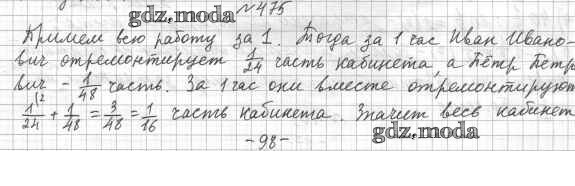 gdz.moda №475
Примем всю работу за 1. Тогда за 1 час Иван Ивано-
вич отремонтирует 1/24 часть кабинета, а Пётр Петр
вич - 1/48 часть. За 1 час они вместе отремонтируют
1/24 (2 + 1/48 = 3/48 = 1/16 часть кабинета. Значит весь кабинет
-98- gdz.moda